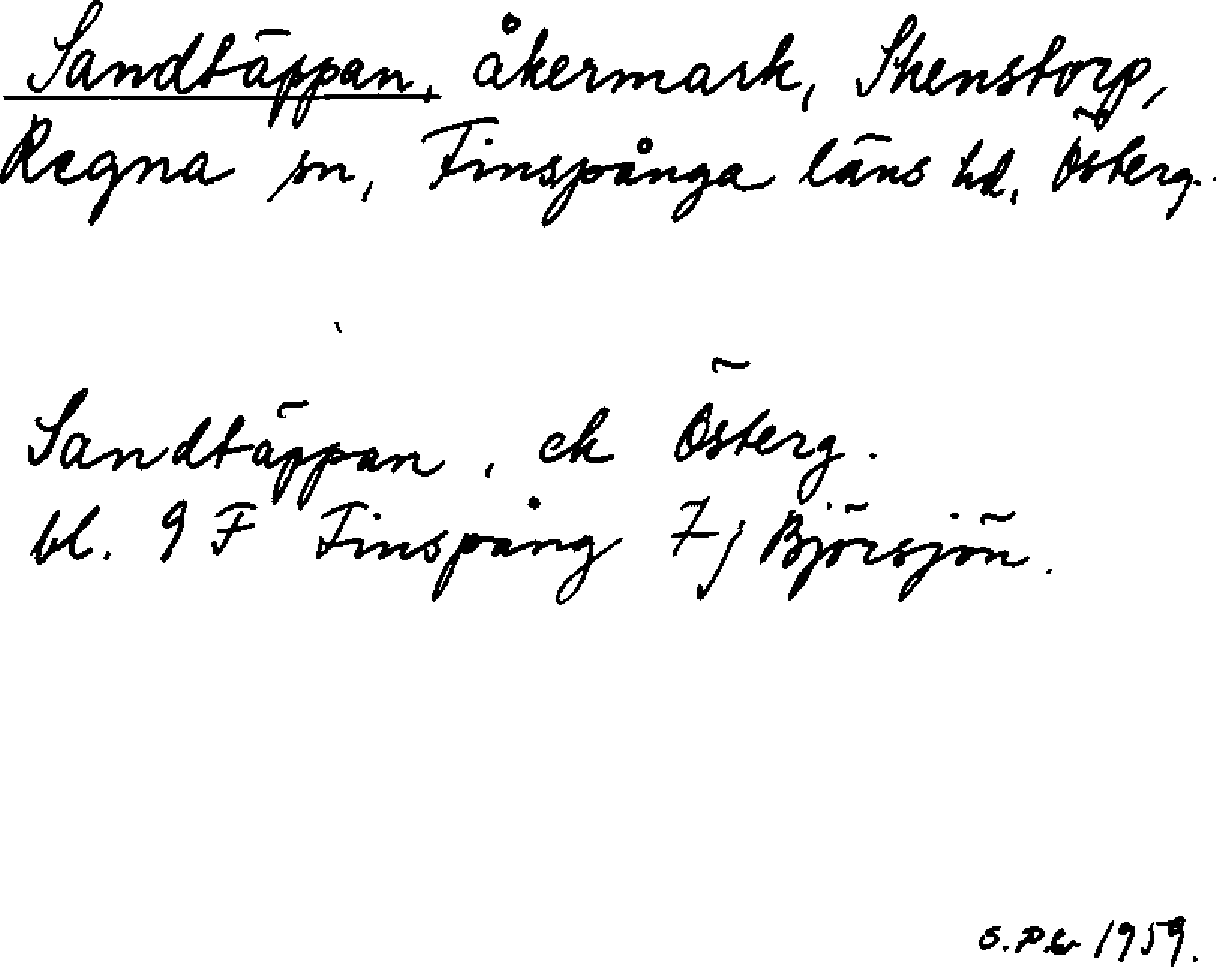 Sandtäppan, åkermark, Skenstorp,
Regna sn, Finspånga läns hd, Österg.
Sandtäppan, ek Österg.
bl. 9 F Finspång 7j Björsjön.
1959.